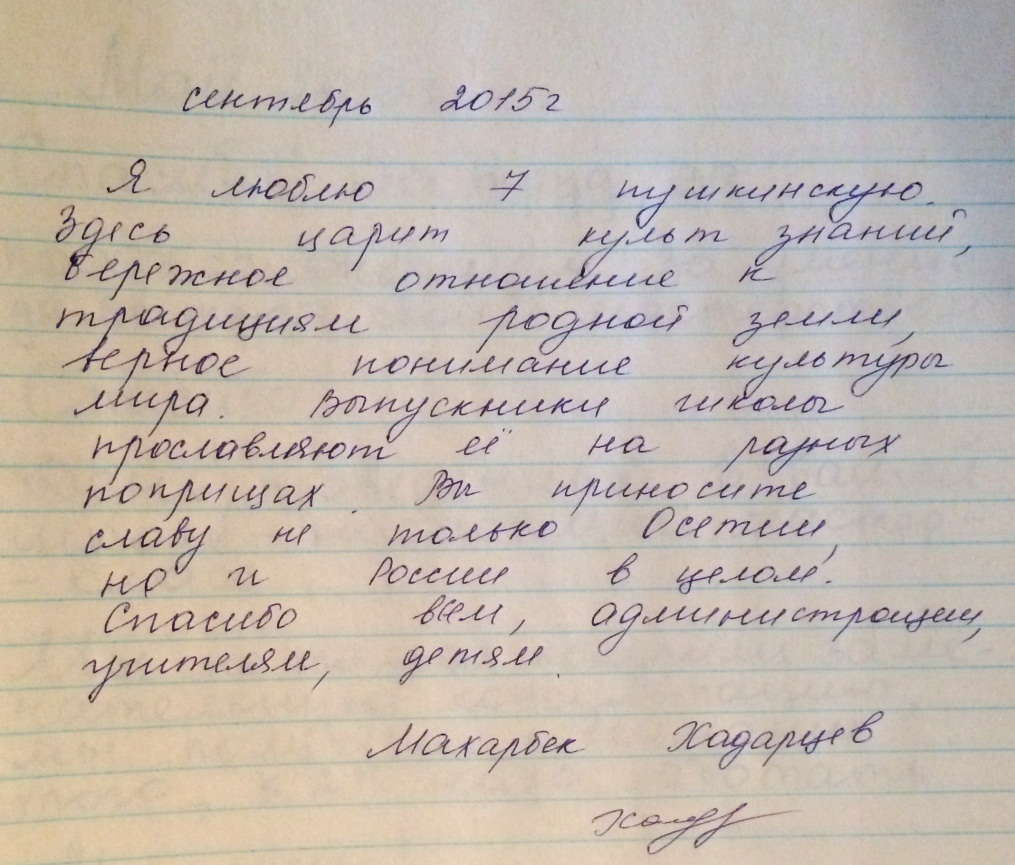 сентябрь 2015г
Я люблю 7 пушкинскую.
Здесь царит культ знаний,
бережное отношение к
традициям родной земли,
верное понимание культуры
мира. Выпускники школы
прославляют её на разных
поприщах. Вы приносите
славу не только Осетии,
но и России в целом.
Спасибо вам, администрации,
учителям, детям.
Махарбек Хадарцев